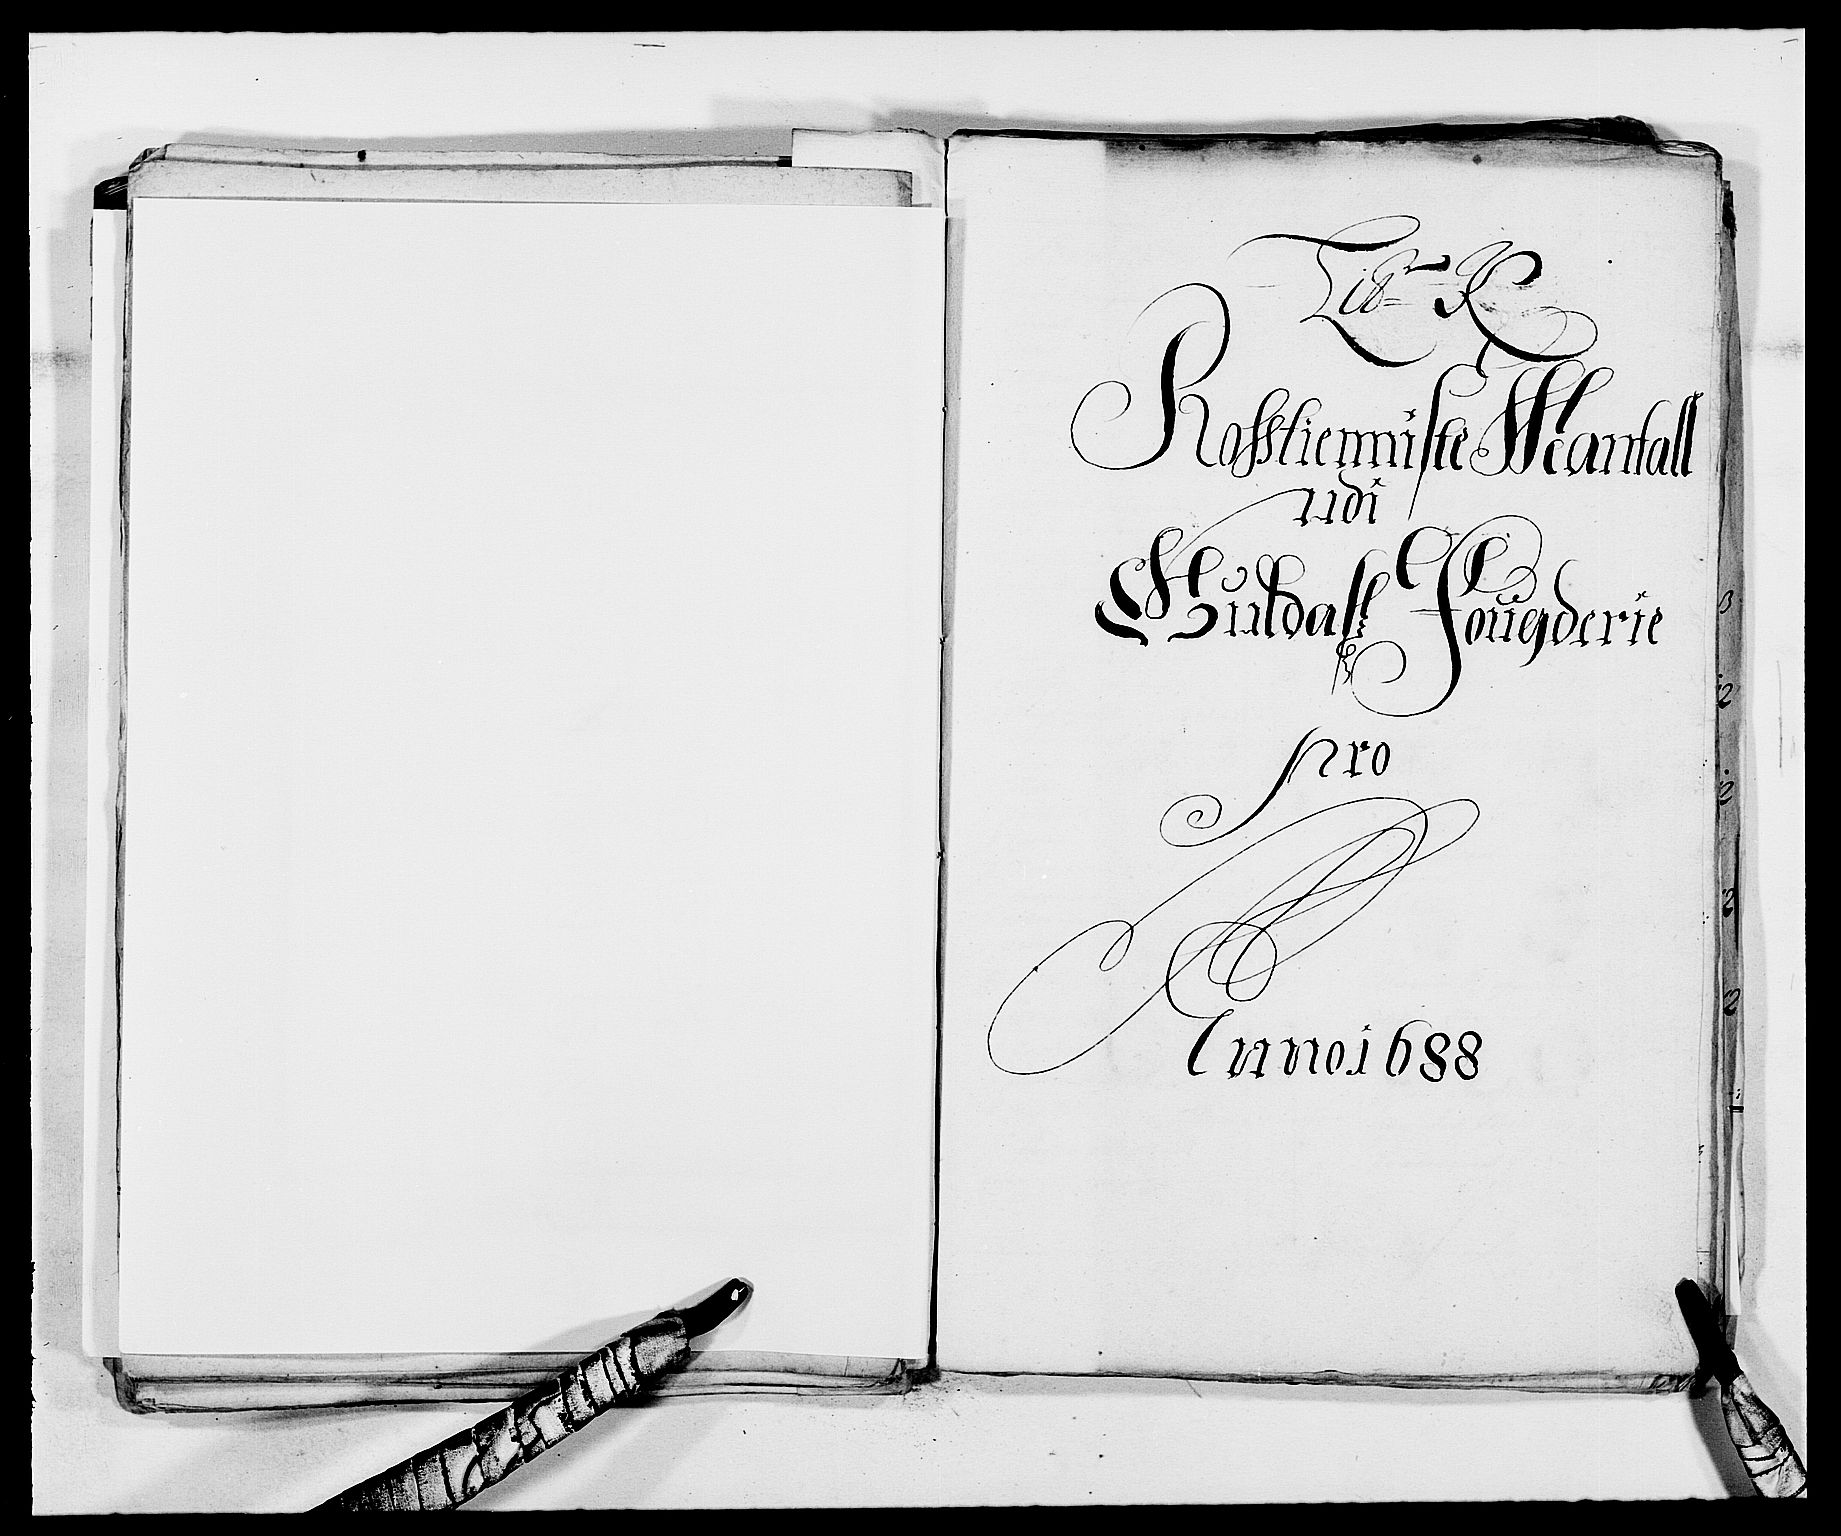 Litr K
Rosstienniste Mantall
udi
Guldals Fougderie
pro
Anno 1688